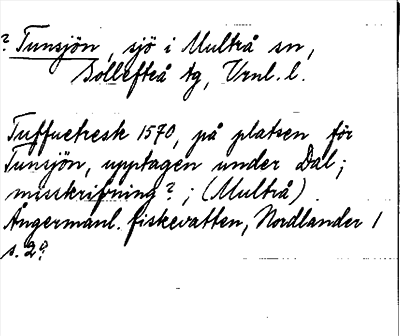 ? Tunsjön, sjö i Multrå sn,
Sollefteå tg, Vrnl. l.
Tuffuetresk 1570, på platsen för
Tunsjön, upptagen under Dal;
misskrifning?; (Multrå)
Ångermanl. fiskevatten, Nordlander 1
s. 2?